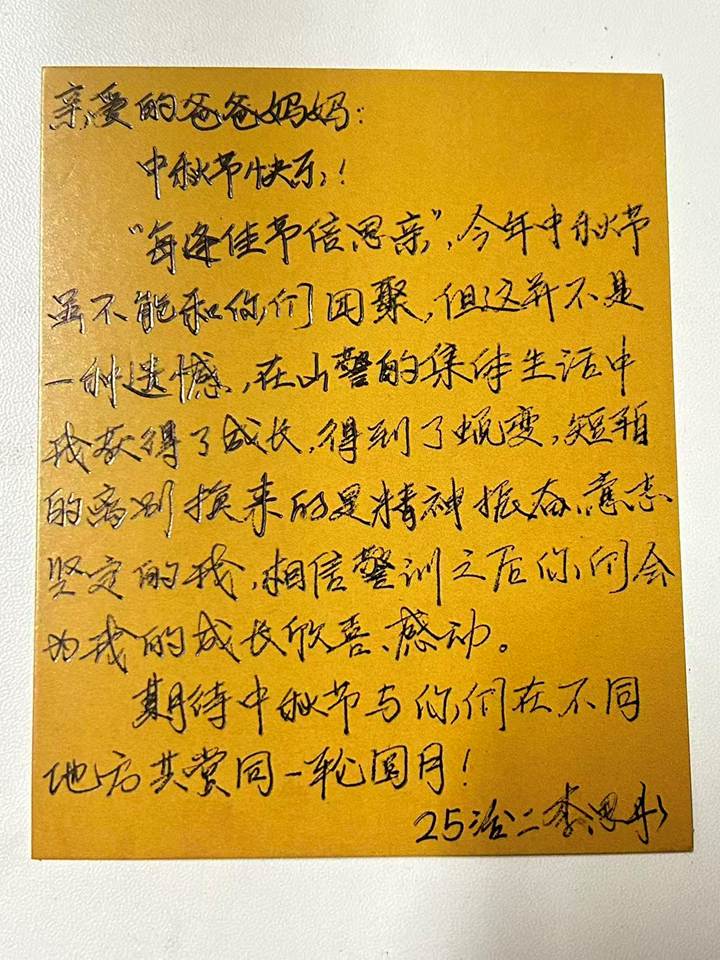 亲爱的爸爸妈妈：
中秋节快乐！
“每逢佳节倍思亲”，今年中秋节
虽不能和你们团聚，但这并不是
一种遗憾，在山警的集体生活中
我获得了成长，得到了蜕变，短暂
的离别换来的是精神振奋、意志
坚定的我，相信警训之后你们会
为我的成长欣喜、感动。
期待中秋节与你们在不同
地方共赏同一轮圆月！
25治二李思彤